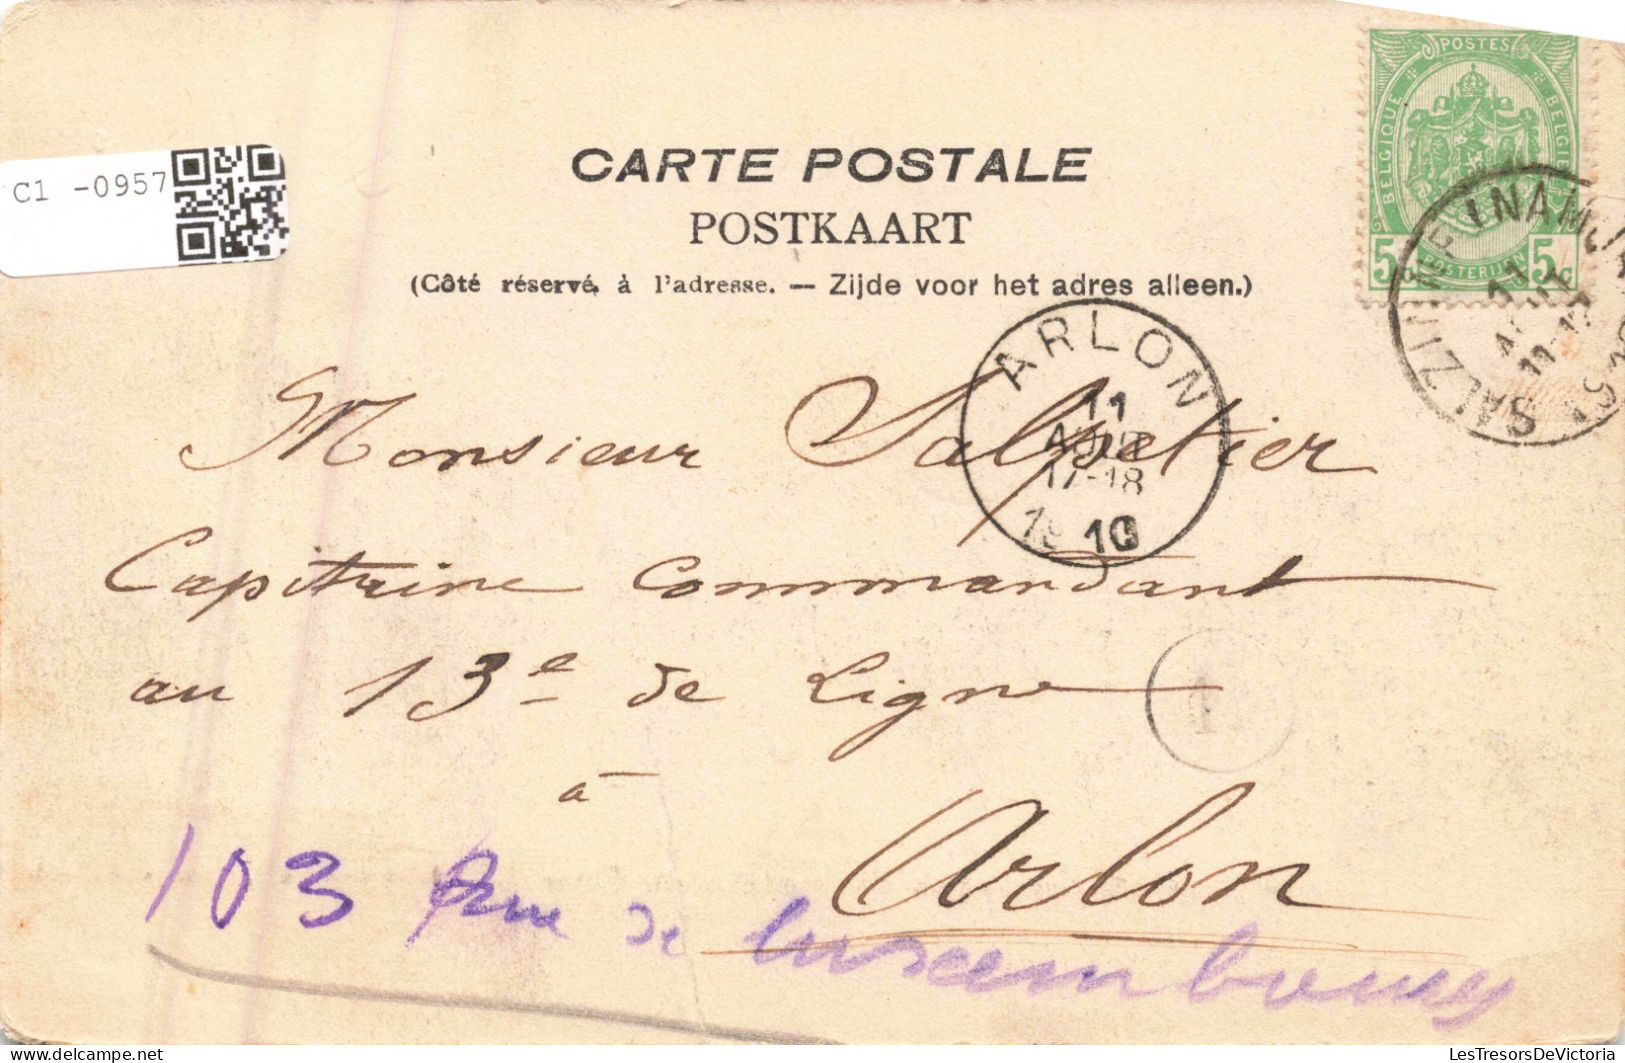 C1 -0957
POSTES
BELGIQUE
BELGIE
5c
POSTERIJEN
5c
CARTE POSTALE
POSTKAART
(Côté réservé à l'adresse. — Zijde voor het adres alleen.)
SALZINNE (NAMUR)
11
11-12
ARLON
11
AOUT
17-18
1910
Monsieur Salpetier
Capitaine Commandant
au 13e de Ligne
à
Arlon
103 Rue de Luxembourg
LesTresorsDeVictoria